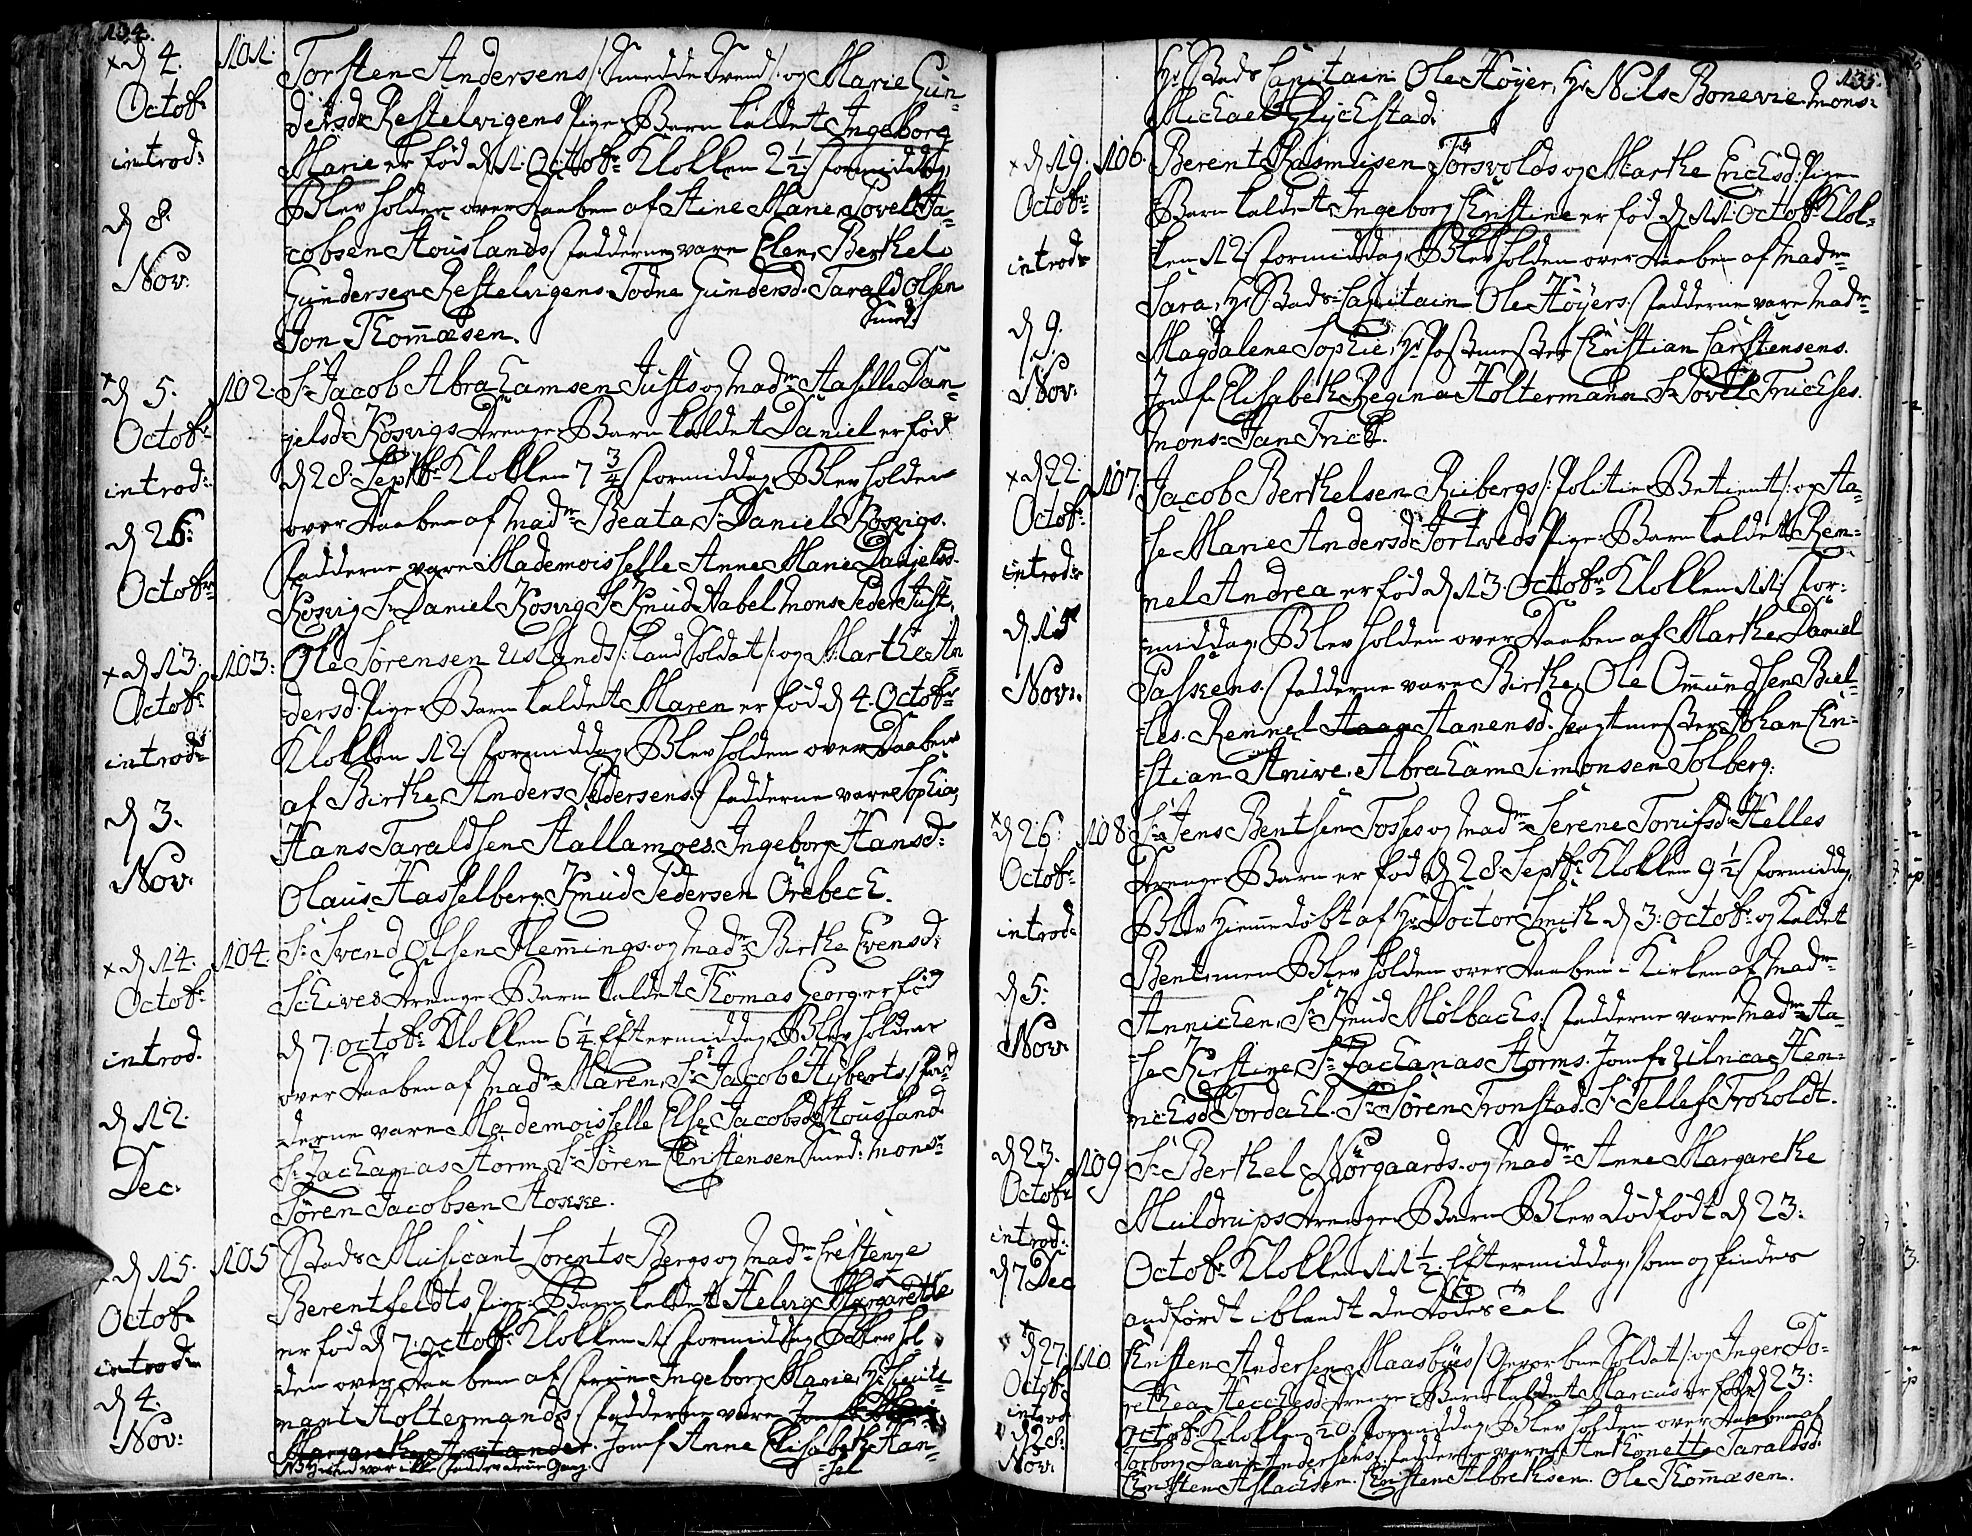 134.
x d 4. Octobr introd: d 8 Nov:
101.
Torsten Andersens /: Smedde Svend :/ og Marie Gun-
dersdr Restelvigens Pige Barn kaldet Ingeborg
Marie er fød d 1. Octobr Klokken 2 1/2 formiddag,
Blev holden over Daaben af Stine Marie Povel Ja-
cobsen Stouslands, Fadderne vare Elen, Berthel
Gundersen Restelvigens. Todne Gundersd. Tarald Olsen
Smed:
Jon Thommæsen.
x d 5. Octobr introd: d 26: Octobr
102.
Sr Jacob Abrahamsen Justs og Madme Aasille Dan-
jelsdr Kosvigs Drenge Barn kaldet Daniel er fød
d 28 Septbr Klokken 7 3/4 formiddag, Blev holden
over Daaben af Madme Beata, Sr Daniel Kosvigs.
Fadderne vare Mademoisselle Anne Marie Danjelsd.
Kosvig Sr Daniel Kosvig Sr Knud Nabel Mons Peder Just.
x d 13. Octobr introdr d 3. Nov:
103:
Ole Sørensen Uslands /: Land Soldat :/ og Marthe An-
dersd. Pige Barn kaldet Maren er fød d 4. Octobr
Klokken 12 formiddag, Blev holden over Daaben
af Birthe, Anders Pedersens. Fadderne vare Sophia,
Hans Taraldsen Stallamoes. Ingeborg Hansd:
Olaus Hasselberg, Knud Pedersen Örebech.
x d 14. Octobr introd. d 12. Dec.
104.
Sr Svend Olsen Flemmings og Madme Birthe Evensd:
Schives Drenge Barn kaldet Thomas Georg er fød
d 7. octobr Klokken 6 1/4 Eftermiddag, Blev holden
over Daaben af Madme Maren, Sr Jacob Hyberts, Fad
derne vare Mademoisselle Else Jacobsdr Stousland
Sr Zacharias Storm, Sr Søren Christensen Smed: Monsr
Søren Jacobsen Stokke.
x d 15. Octobr introdr d 4. Nov:
105
Stads Musicant Lorents Bergs og Madme Crestenze
Berentfeldts Pige Barn kaldet Helvig Margarethe
er fød d 7. octobr Klokken 11 formiddag, Blev hol
den over Daaben af Fruen Ingeborg Marie, Hr Lieute-
nant Holtermands, Fadderne vare Jomf
Margarethe. Jomf Anne Elisabeth Han-
NB Hierved var ikke Fadder denne Gang. sel
135.
Hr Stads Capitain Ole Höyer, Hr Nils Bonevie Mons:
Michael Glychstad.
x d 19. Octobr introdr d 9. Nov:
106.
Berent Rasmusen Törsvolds og Marthe Erichsd: Pige
Barn kaldet Ingeborg Christine er fød d 11. Octobr Klok-
ken 12 formiddag, Blev holden over Daaben af Madme
Sara, Hr Stads Capitain Ole Höyers. Fadderne vare Madme
Magdalene Sophie, Hr Postmester Christian Carstensens.
Jomf. Elisabeth Regina Holtermann Sr Povel Trichses.
Mons: Jan Trich.
x d 22. Octobr introdr d 15 Nov:
107.
Jacob Berthelsen Riibergs /: Politie Betient :/ og Aa-
se Marie Andersdr Tortveds Pige Barn kaldet Ren-
nel Andrea er fød d 13. Octobr Klokken 11 for-
middag, Blev holden over Daaben af Marthe, Daniel
Paskens. Fadderne vare Birthe, Ole Ommundsen Biel-
kes. Rennel Aanensd. Jagtmester Johan Chri-
stian Anive. Abraham Simonsen Solberg:
x d 26. Octobr introd: d 5: Nov:
108.
Sr Jens Bentsen Fosses og Madme Serene Torrisdr Helles
Drenge Barn er fød d 28 Septbr Klokken 9 1/2 formiddag,
Blev Hiemmedøbt af Hr Doctor Smith d 3: octobr og Kaldet
Bent men Blev holden over Daaben i Kirken af Madme
Annichen, Sr Knud Mölbachs. Fadderne vare Madme Aa-
se Kirstine, Sr Zacharias Storms. Jomfr Ulrica Hen-
richsdr Tordahl. Sr Søren Tronstad. Sr Tellef Froholdt.
d 23. Octobr introd: d 7 Dec
109
Sr Berthel Nörgaards. og Madme Anne Margarethe
Muldrups Drenge Barn Blev dødfødt d 23:
Octobr Klokken 11 1/2 Eftermiddag, som og findes
andført iblandt de dødes tal
x d 27. Octobr introd d 28: Nov:
110
Christen Andersen Maasbyes /: Gevorben Soldat :/ og Inger Do-
rethea Hecchesd. Drenge Barn kaldet Marcus er Født d 23:
Octobr Klokken 10 formiddag, Blev holden over Daaben af
Torborg, Andersens, Fadderne vare Anthonette Taraldsd.
Christen Aslachsen. Christen Albrethsen. Ole Thommæsen.